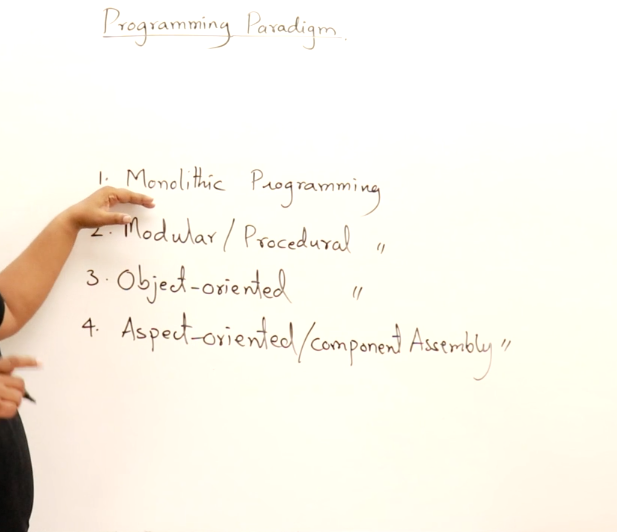 Programming Paradigm.
1. Monolithic Programming
2. Modular / Procedural "
3. Object-oriented "
4. Aspect-oriented/component Assembly "